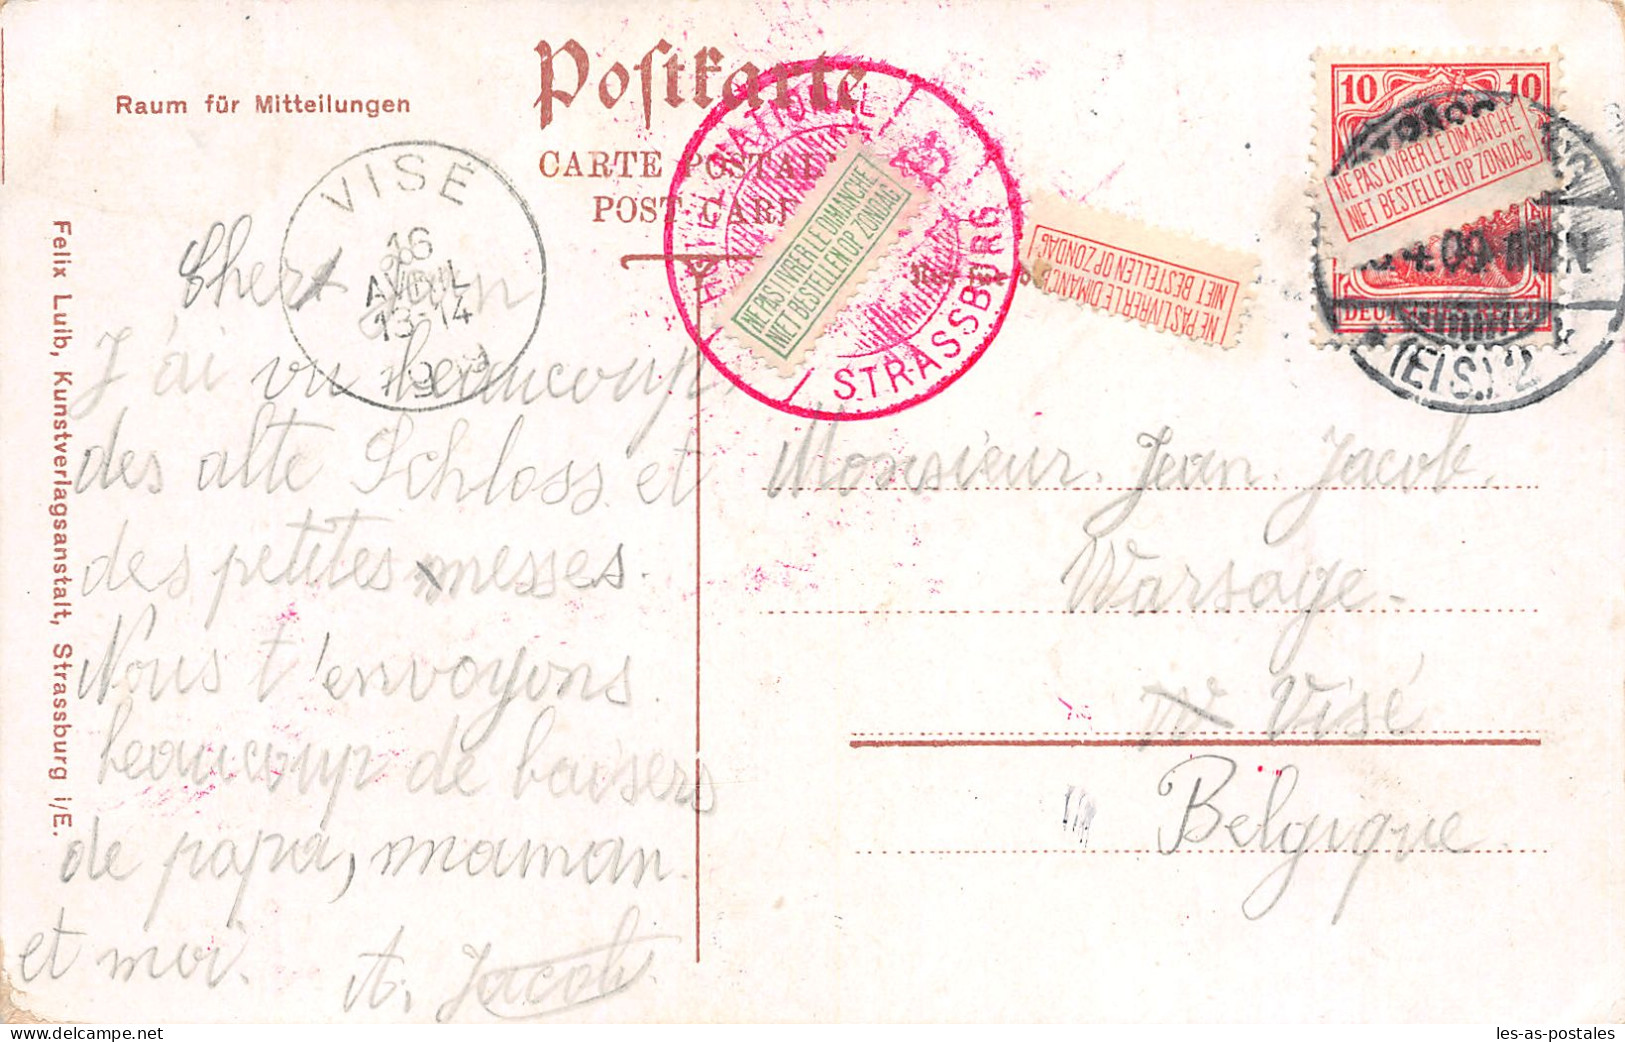 Postkarte
CARTE POSTALE
POST CARD
Raum für Mitteilungen
VISÉ
16
AVRIL
13-14
HÔTEL NATIONAL
STRASSBURG
NE PAS LIVRER LE DIMANCHE
NIET BESTELLEN OP ZONDAG
NE PAS LIVRER LE DIMANCHE
NIET BESTELLEN OP ZONDAG
10 10
NE PAS LIVRER LE DIMANCHE
NIET BESTELLEN OP ZONDAG
DEUTSCHES REICH
(ELS.) 2
Cher Jean
J'ai vu beaucoup
des alte Schloss et
des petites messes.
Nous t'envoyons
beaucoup de baisers
de papa, maman
et moi.
A. Jacob
Monsieur Jean Jacob.
Warsage.
Visé
Belgique
Felix Luib, Kunstverlagsanstalt, Strassburg i/E.
les-as-postales